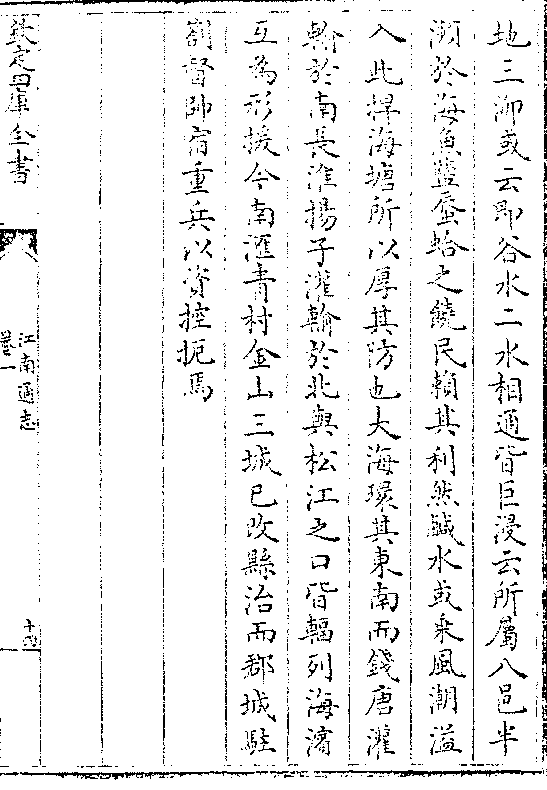 地三泖或云即谷水二水相通皆巨浸云所屬八邑半
瀕於海魚鹽蜃蛤之饒民賴其利然鹹水或乗風潮溢
入此捍海塘所以厚其防也大海環其東南而錢唐灌
輸於南長淮揚子灌輸於北與松江之口皆輻列海濱
互為形援今南滙青村金山三城已改縣治而郡城駐
劄督帥宿重兵以資控扼焉
欽定四庫全書
江南通志
卷一
十四